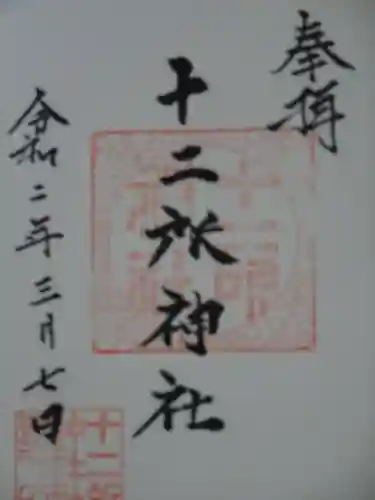 奉拝
十二所神社
令和二年三月七日
十二所